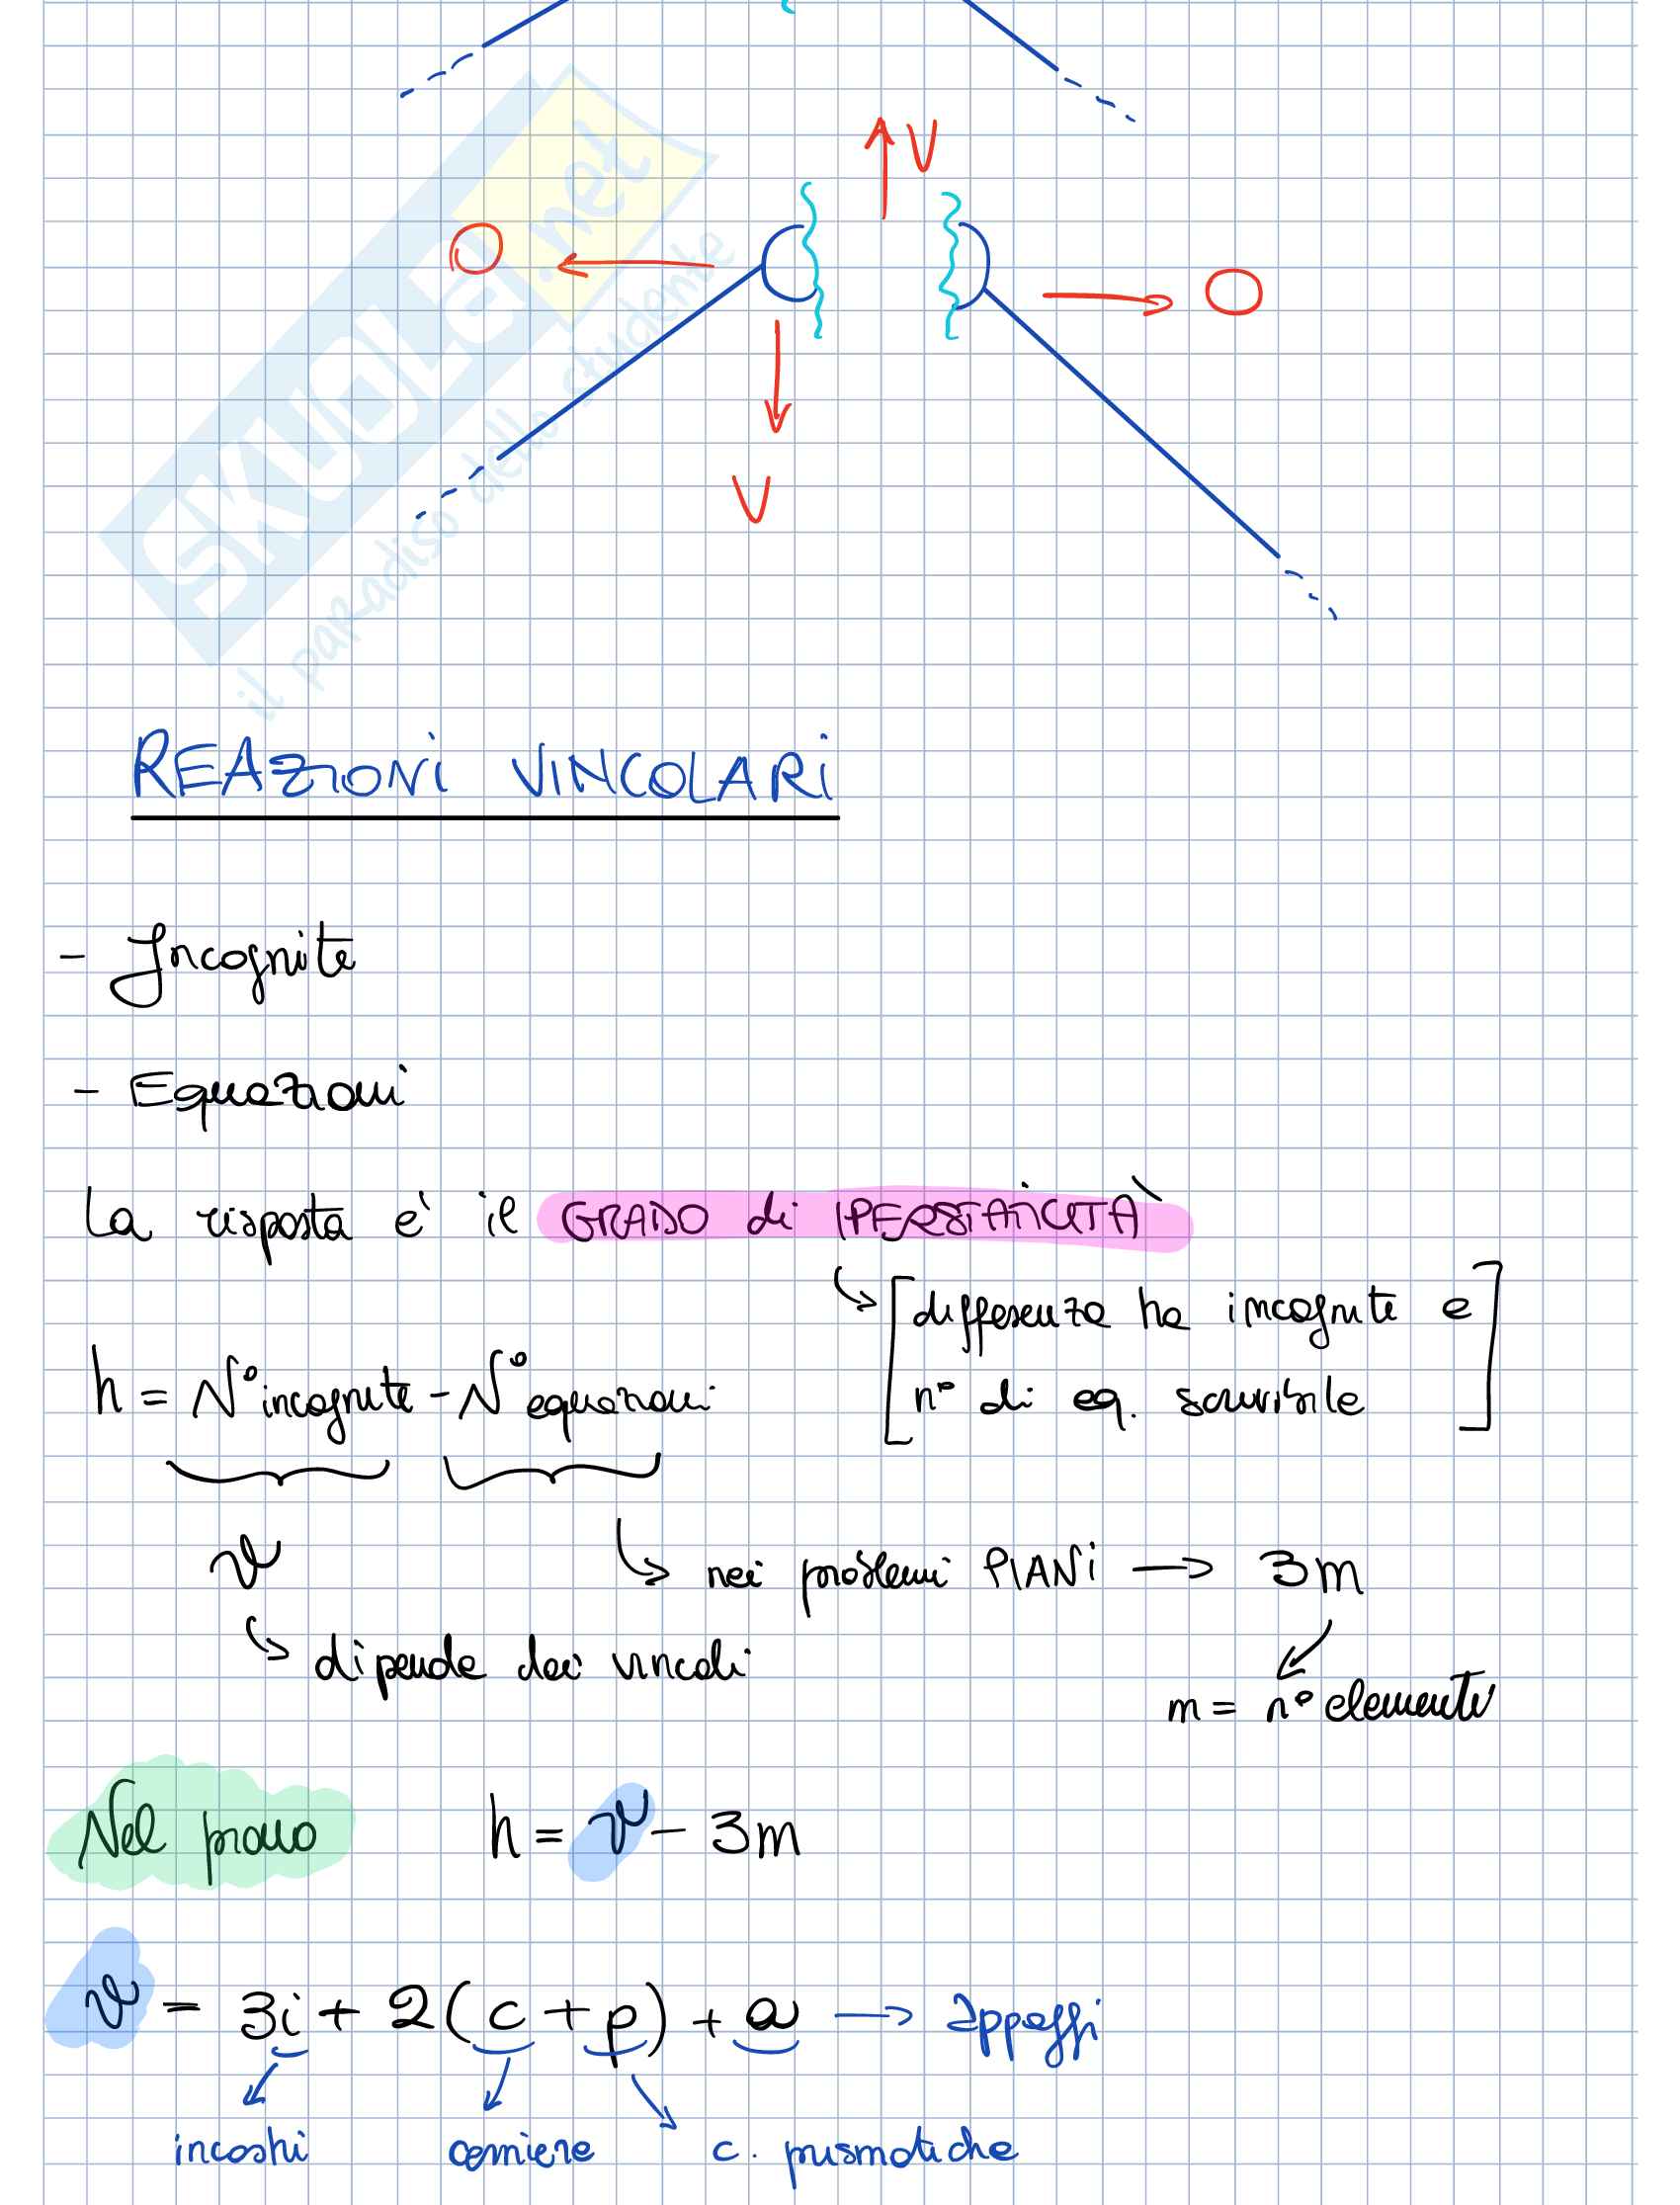 V
O
O
V
SKUOLA.net
il paradiso dello studente
REAZIONI VINCOLARI
- Incognite
- Equazioni
La risposta e' il GRADO di IPERSTATICITÀ
[differenza tra incognite e
n° di eq. scrivibile]
h = N° incognite - N° equazioni
v
nei problemi PIANI → 3m
dipende dai vincoli
m = n° elementi
Nel piano h = v - 3m
v = 3i + 2(c + p) + a → appoggi
incastri cerniere c. prismatiche